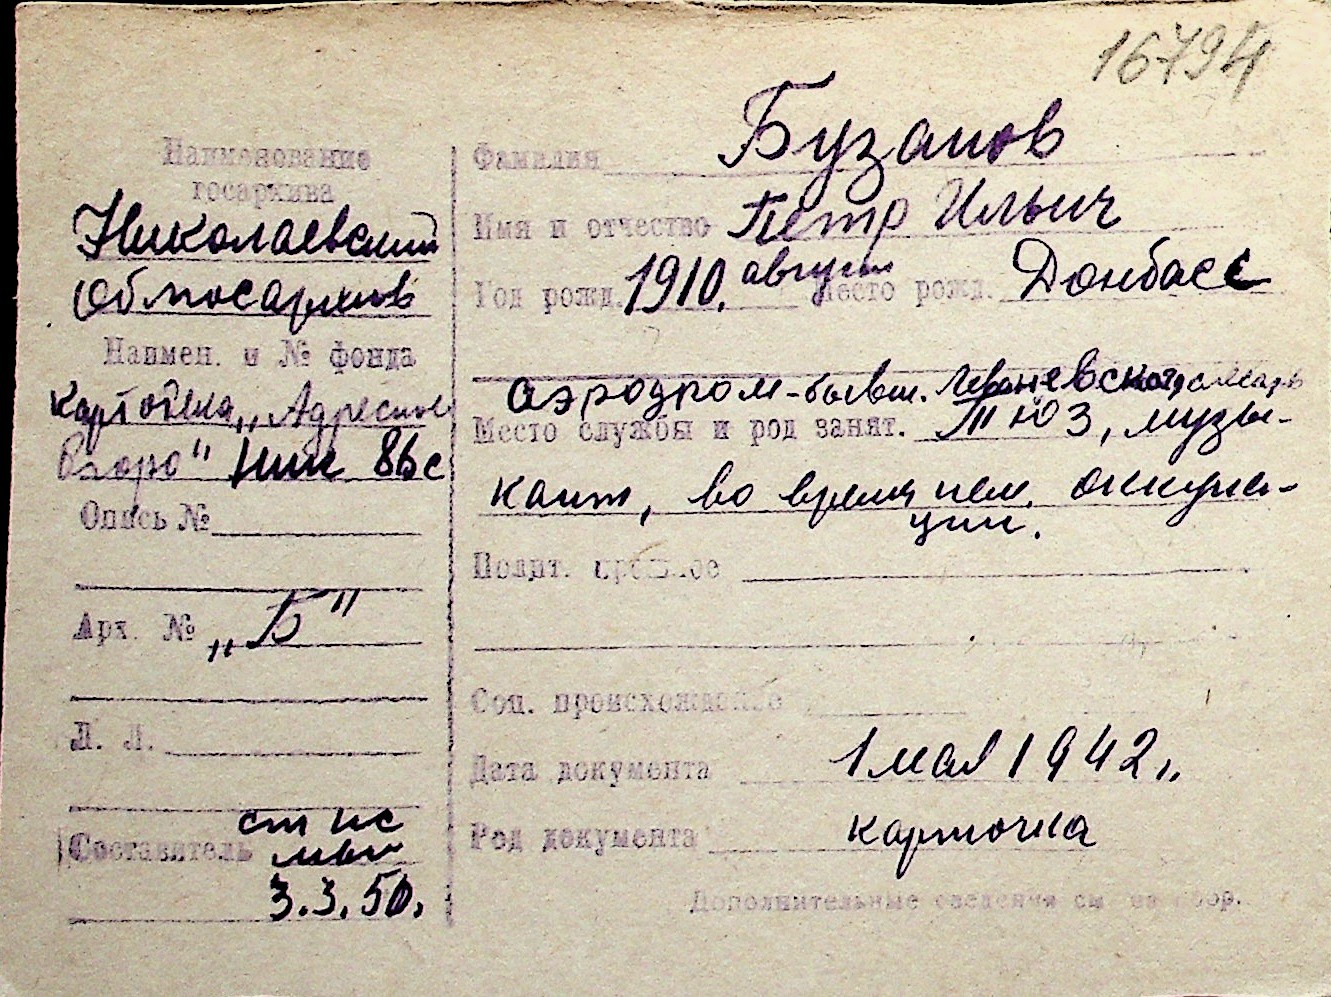 16794
Наименование
госархива
Николаевский
Облгосархив
Наимен. и № фонда
Картотека „Адресное
бюро"
Опись №
Арх. № „Б"
Л. Л.
Составитель
3.3.50.
Фамилия Бузанов
Имя и отчество Петр Ильич
Год рожд. 1910. август Место рожд. Донбасс
аэродром - бывш. Леваневского, слесарь
Место службы и род занят. ТЮЗ, музы-
кант, во время нем. оккупа-
ции.
Полит. прошлое
Соц. происхождение
Дата документа 1 мая 1942 г.
Род документа карточка
Дополнительные сведения см. на обор.